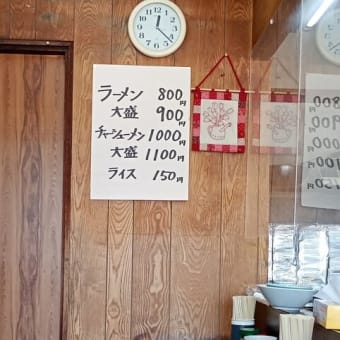 ラーメン 800円
大盛 900円
チャーシューメン 1000円
大盛 1100円
ライス 150円